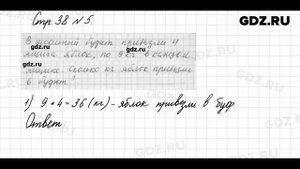 GDZ.RU
Стр. 38 № 5.
В школьный буфет привезли 4
ящика яблок, по 9 кг в каждом
ящике. Сколько кг яблок привезли
в буфет?
1) 9 * 4 = 36 (кг) - яблок привезли в буф
Ответ:
GDZ.RU